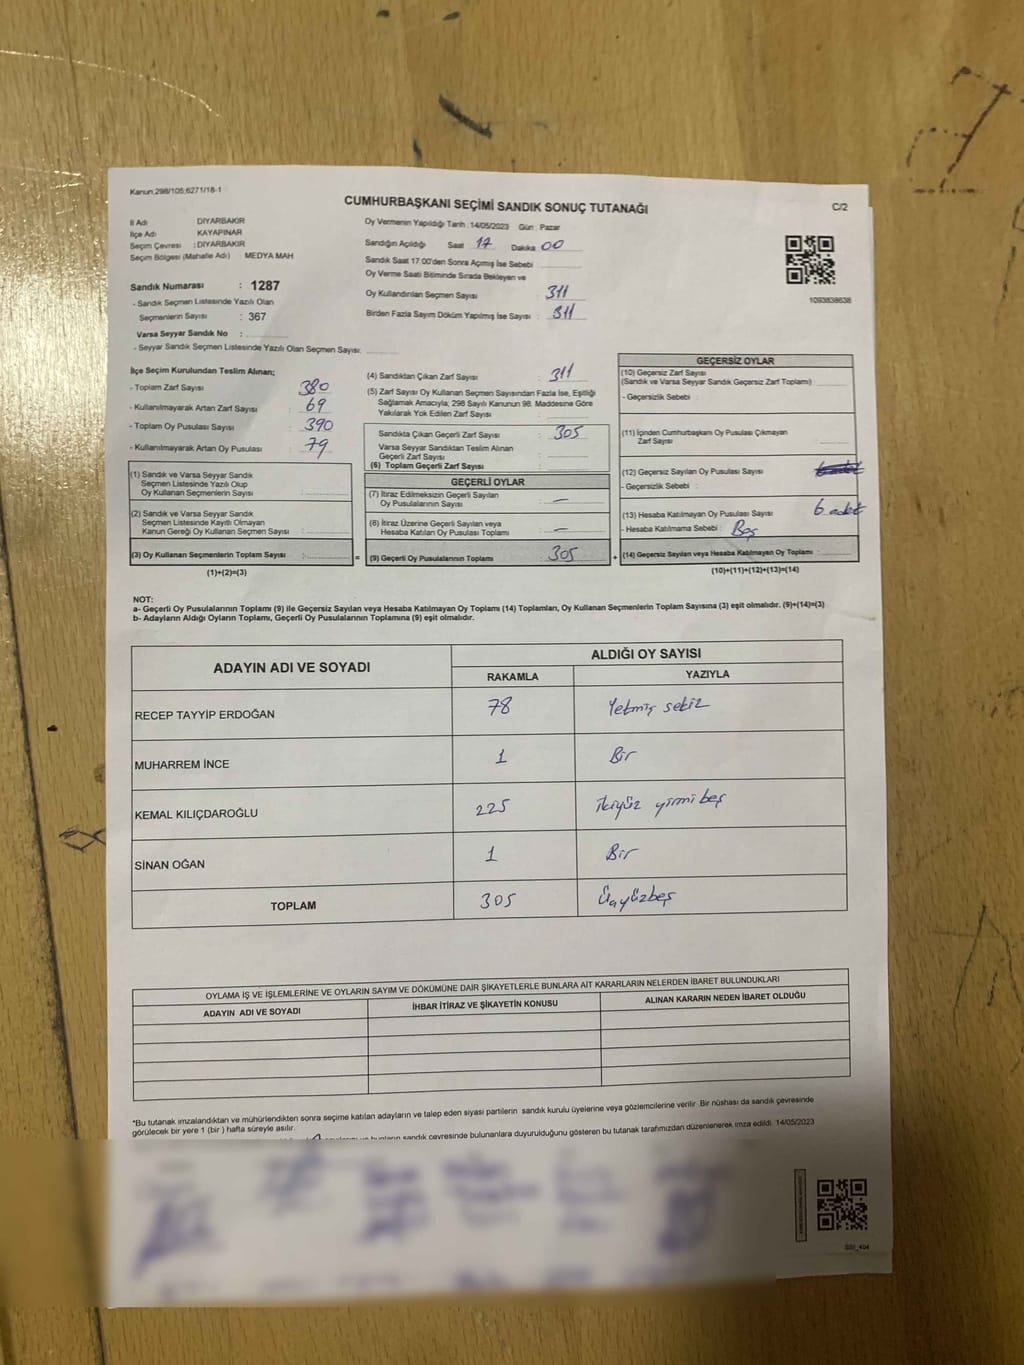 Kanun,298/105;6271/18-1
CUMHURBAŞKANI SEÇİMİ SANDIK SONUÇ TUTANAĞI
C/2
İl Adı DİYARBAKIR
İlçe Adı KAYAPINAR
Seçim Çevresi : DİYARBAKIR
Seçim Bölgesi (Mahalle Adı) MEDYA MAH
Sandık Numarası : 1287
- Sandık Seçmen Listesinde Yazılı Olan
Seçmenlerin Sayısı : 367
Varsa Seyyar Sandık No :
- Seyyar Sandık Seçmen Listesinde Yazılı Olan Seçmen Sayısı:
Oy Vermenin Yapıldığı Tarih :14/05/2023 Gün : Pazar
Sandığın Açıldığı Saat 17 Dakika 00
Sandık Saat 17:00'den Sonra Açımış İse Sebebi
Oy Verme Saati Bitiminde Sırada Bekleyen ve
Oy Kullandırılan Seçmen Sayısı : 311
Birden Fazla Sayım Döküm Yapılmış İse Sayısı : 311
1093838638
İlçe Seçim Kurulundan Teslim Alınan;
- Toplam Zarf Sayısı : 380
- Kullanılmayarak Artan Zarf Sayısı : 69
- Toplam Oy Pusulası Sayısı : 390
- Kullanılmayarak Artan Oy Pusulası : 79
(1) Sandık ve Varsa Seyyar Sandık
Seçmen Listesinde Yazılı Olup
Oy Kullanan Seçmenlerin Sayısı :
(2) Sandık ve Varsa Seyyar Sandık
Seçmen Listesinde Kayıtlı Olmayan
Kanun Gereği Oy Kullanan Seçmen Sayısı :
(3) Oy Kullanan Seçmenlerin Toplam Sayısı :
(1)+(2)=(3)
=
(4) Sandıktan Çıkan Zarf Sayısı : 311
(5) Zarf Sayısı Oy Kullanan Seçmen Sayısından Fazla İse, Eşitliği
Sağlamak Amacıyla; 298 Sayılı Kanunun 98. Maddesine Göre
Yakılarak Yok Edilen Zarf Sayısı :
Sandıkta Çıkan Geçerli Zarf Sayısı : 305
Varsa Seyyar Sandıktan Teslim Alınan
Geçerli Zarf Sayısı :
(6) Toplam Geçerli Zarf Sayısı :
GEÇERLİ OYLAR
(7) İtiraz Edilmeksizin Geçerli Sayılan
Oy Pusulalarının Sayısı : —
(8) İtiraz Üzerine Geçerli Sayılan veya
Hesaba Katılan Oy Pusulası Toplamı : —
(9) Geçerli Oy Pusulalarının Toplamı : 305
+
GEÇERSİZ OYLAR
(10) Geçersiz Zarf Sayısı
(Sandık ve Varsa Seyyar Sandık Geçersiz Zarf Toplamı)
- Geçersizlik Sebebi :
(11) İçinden Cumhurbaşkanı Oy Pusulası Çıkmayan
Zarf Sayısı :
(12) Geçersiz Sayılan Oy Pusulası Sayısı
- Geçersizlik Sebebi :
(13) Hesaba Katılmayan Oy Pusulası Sayısı : 6 adet
- Hesaba Katılmama Sebebi : Boş
(14) Geçersiz Sayılan veya Hesaba Katılmayan Oy Toplamı :
(10)+(11)+(12)+(13)=(14)
NOT:
a- Geçerli Oy Pusulalarının Toplamı (9) ile Geçersiz Sayılan veya Hesaba Katılmayan Oy Toplamı (14) Toplamları, Oy Kullanan Seçmenlerin Toplam Sayısına (3) eşit olmalıdır. (9)+(14)=(3)
b- Adayların Aldığı Oyların Toplamı, Geçerli Oy Pusulalarının Toplamına (9) eşit olmalıdır.
ADAYIN ADI VE SOYADI
ALDIĞI OY SAYISI
RAKAMLA YAZIYLA
RECEP TAYYİP ERDOĞAN 78 Yetmiş sekiz
MUHARREM İNCE 1 Bir
KEMAL KILIÇDAROĞLU 225 İkiyüz yirmi beş
SİNAN OĞAN 1 Bir
TOPLAM 305 Üçyüzbeş
OYLAMA İŞ VE İŞLEMLERİNE VE OYLARIN SAYIM VE DÖKÜMÜNE DAİR ŞİKAYETLERLE BUNLARA AİT KARARLARIN NELERDEN İBARET BULUNDUKLARI
ADAYIN ADI VE SOYADI İHBAR İTİRAZ VE ŞİKAYETİN KONUSU ALINAN KARARIN NEDEN İBARET OLDUĞU
*Bu tutanak imzalandıktan ve mühürlendikten sonra seçime katılan adayların ve talep eden siyasi partilerin sandık kurulu üyelerine veya gözlemcilerine verilir .Bir nüshası da sandık çevresinde
görülecek bir yere 1 (bir ) hafta süreyle asılır.
sandık çevresinde bulunanlara duyurulduğunu gösteren bu tutanak tarafımızdan düzenlenerek imza edildi. 14/05/2023